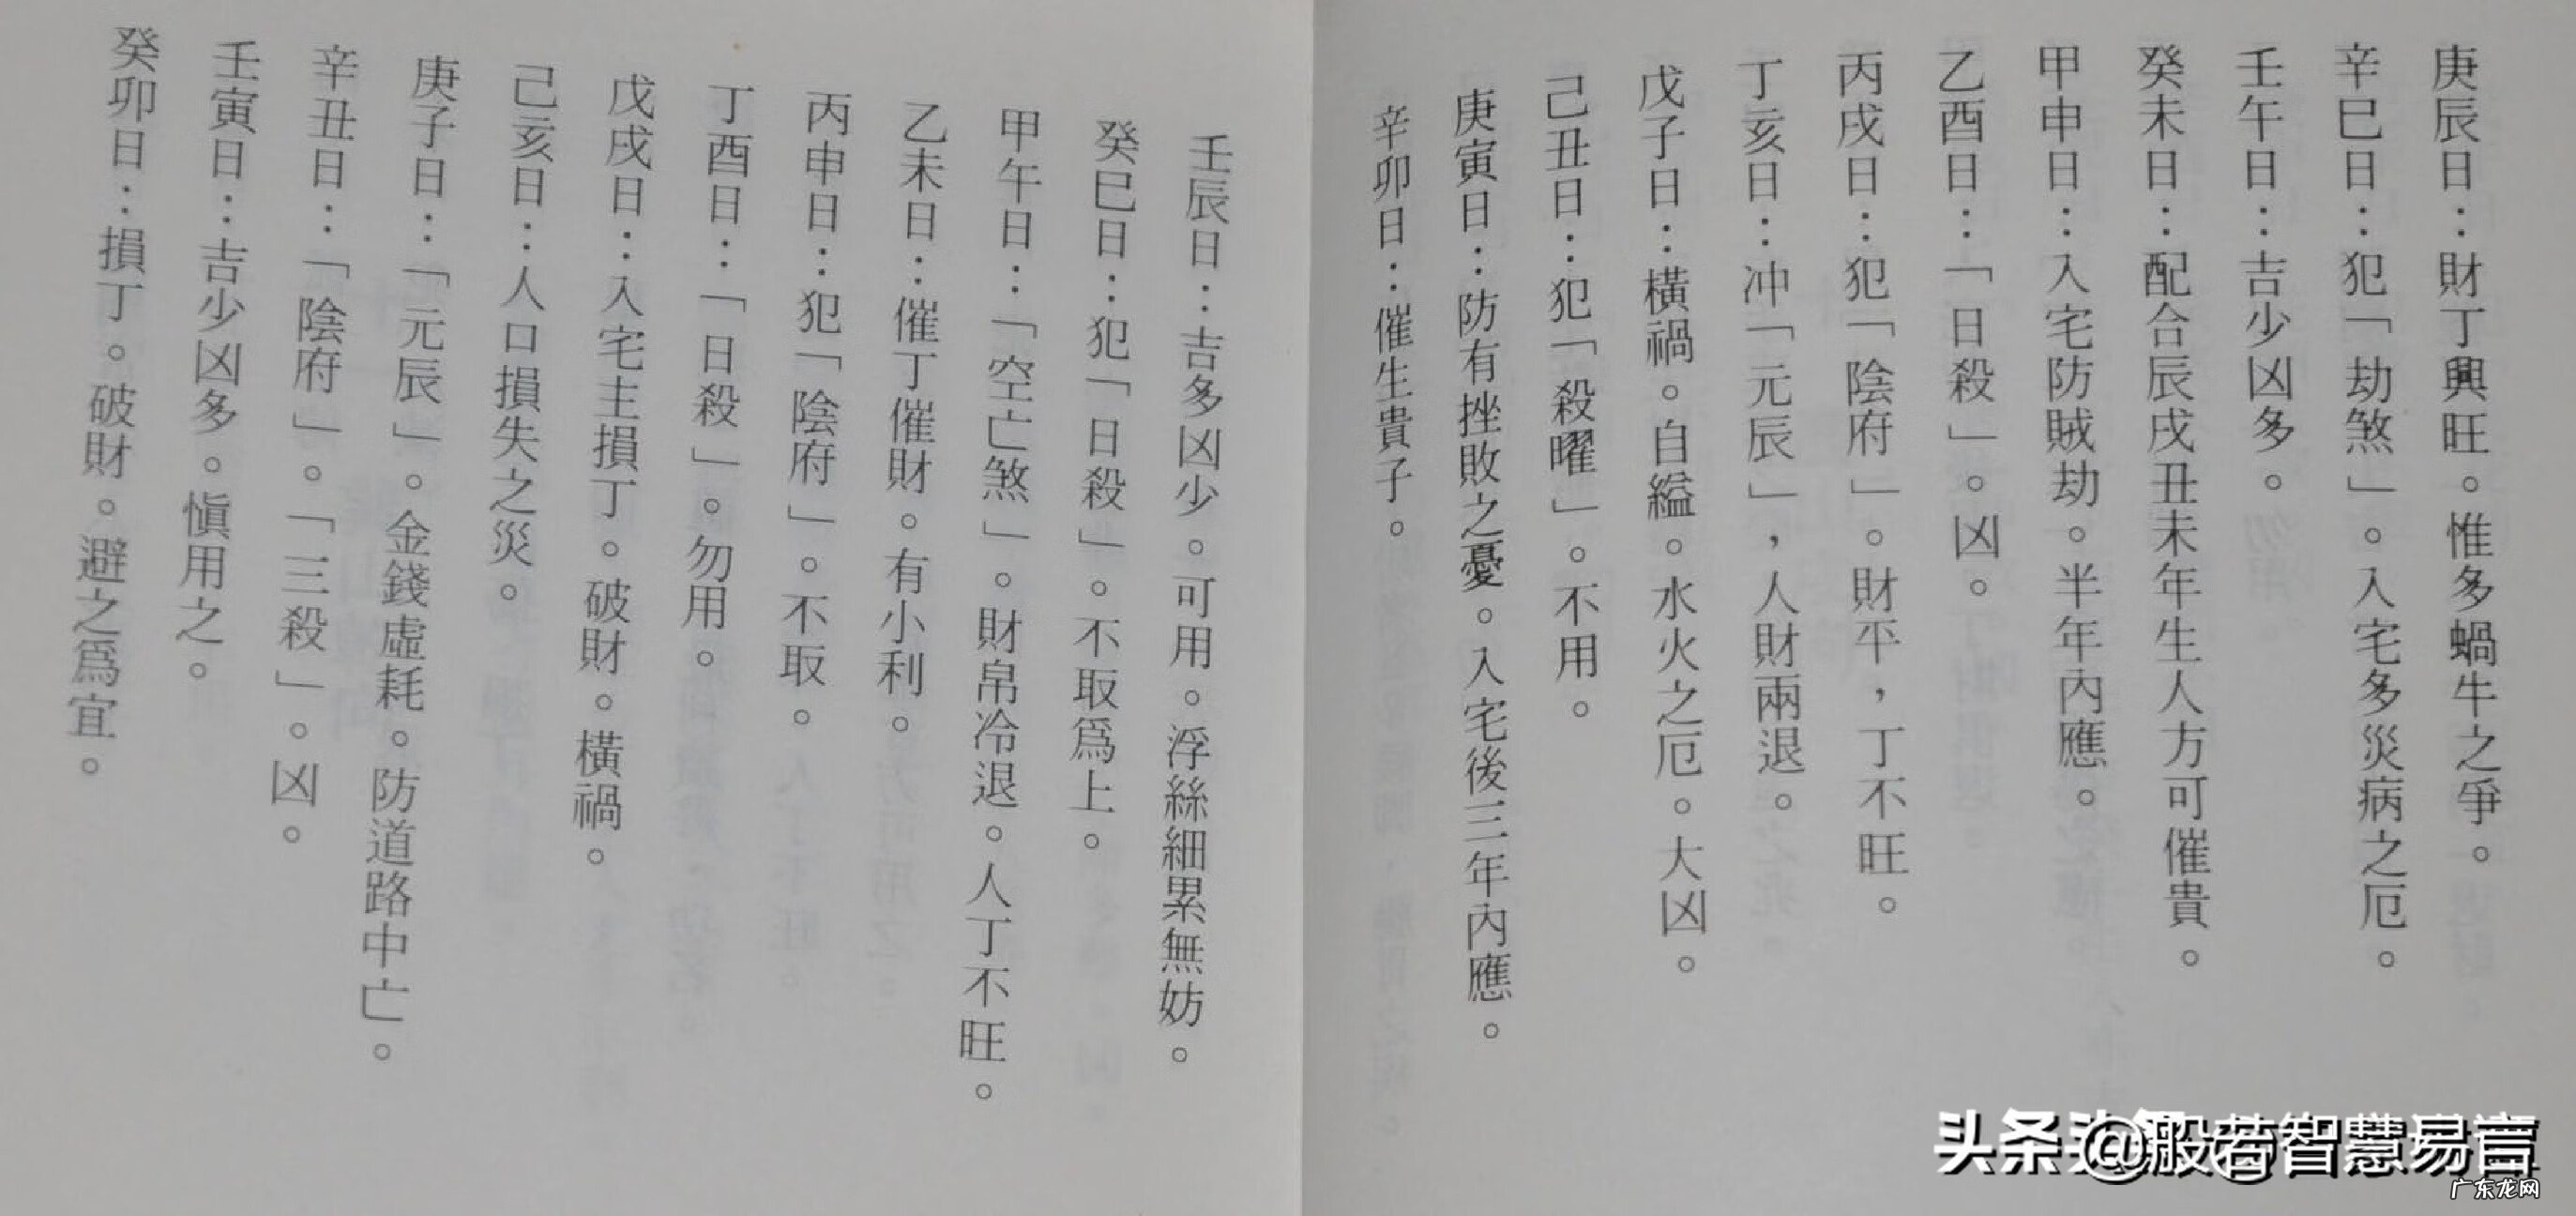 庚辰日：財丁興旺。惟多蝸牛之爭。
辛巳日：犯「劫煞」。入宅多災病之厄。
壬午日：吉少凶多。
癸未日：配合辰戌丑未年生人方可催貴。
甲申日：入宅防賊劫。半年內應。
乙酉日：「日殺」。凶。
丙戌日：犯「陰府」。財平，丁不旺。
丁亥日：冲「元辰」，人財兩退。
戊子日：橫禍。自縊。水火之厄。大凶。
己丑日：犯「殺曜」。不用。
庚寅日：防有挫敗之憂。入宅後三年內應。
辛卯日：催生貴子。
壬辰日：吉多凶少。可用。浮絲細累無妨。
癸巳日：犯「日殺」。不取爲上。
甲午日：「空亡煞」。財帛冷退。人丁不旺。
乙未日：催丁催財。有小利。
丙申日：犯「陰府」。不取。
丁酉日：「日殺」。勿用。
戊戌日：入宅主損丁。破財。橫禍。
己亥日：人口損失之災。
庚子日：「元辰」。金錢虛耗。防道路中亡。
辛丑日：「陰府」。「三殺」。凶。
壬寅日：吉少凶多。慎用之。
癸卯日：損丁。破財。避之爲宜。
头条 @般若智慧易言
广东龙网